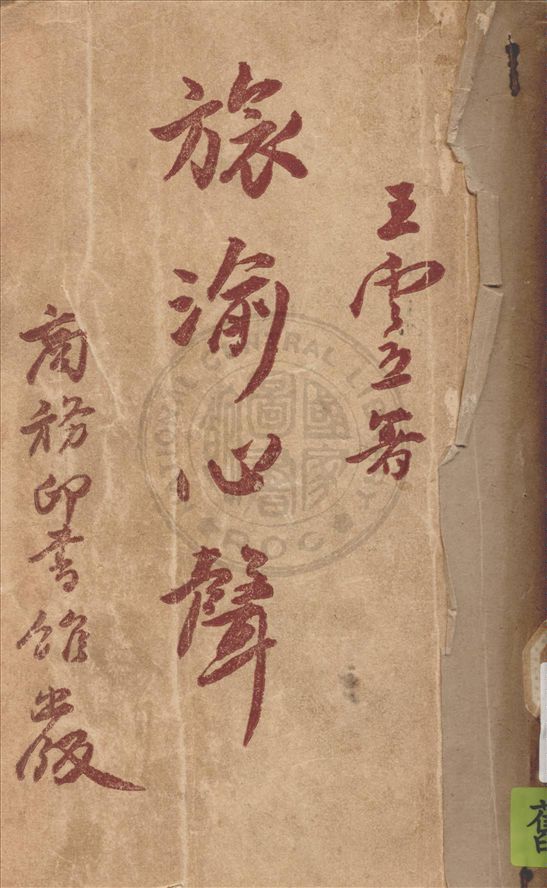 王雲五著
旅渝心聲
商務印書館出版
NATIONAL CENTRAL LIBRARY
ROC
國家圖書館
舊